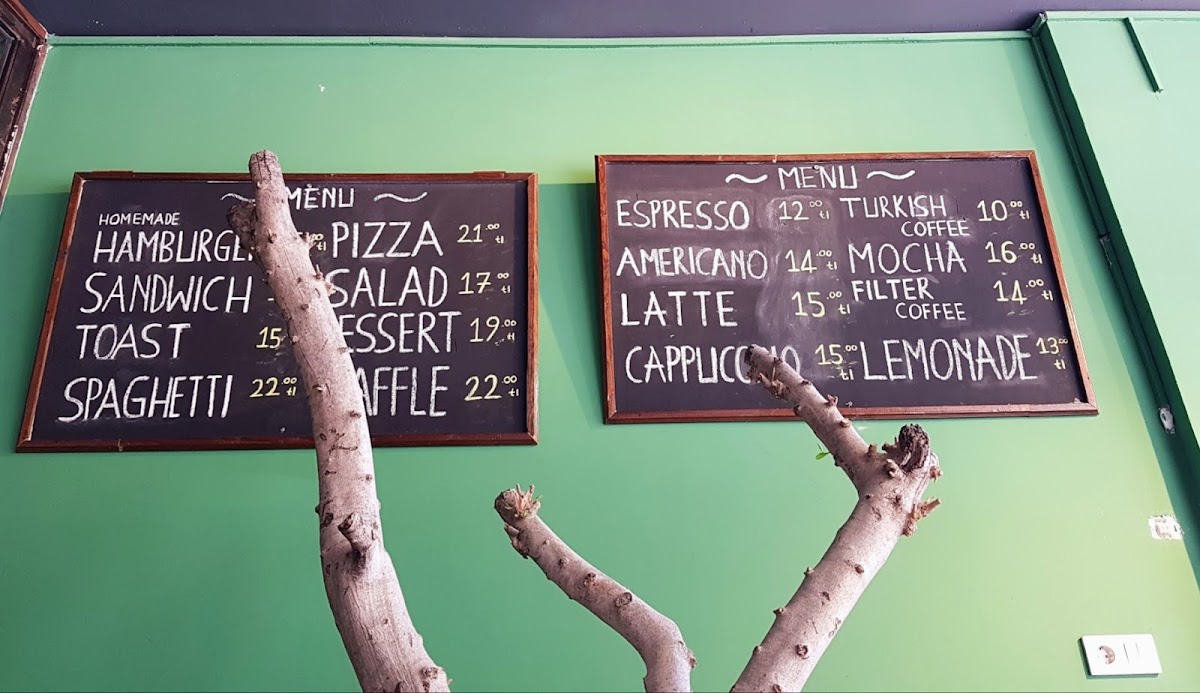 MENU
HOMEMADE
HAMBURGER tl PIZZA 21.00 tl
SANDWICH SALAD 17.00 tl
TOAST 15 DESSERT 19.00 tl
SPAGHETTI 22.00 tl WAFFLE 22.00 tl
MENU
ESPRESSO 12.00 tl TURKISH COFFEE 10.00 tl
AMERICANO 14.00 tl MOCHA 16.00 tl
LATTE 15.00 tl FILTER COFFEE 14.00 tl
CAPPUCCINO 15.00 tl LEMONADE 13.00 tl